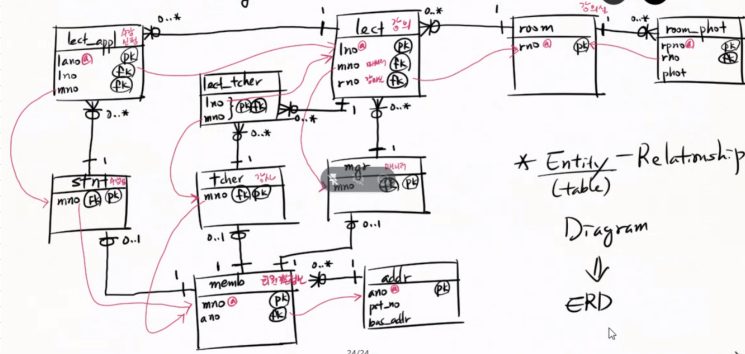 lect_app 수강신청
lano ⓐ pk
lno fk
mno fk
0..*
1
lect 강의
lno ⓐ pk
mno 매니저 fk
rno 강의실 fk
0..*
1
강의실
room
rno ⓐ pk
1
0..*
room_phot
rpno ⓐ pk
rno fk
phot
lect_tcher
lno
mno } pk fk
0..*
1
0..*
0..*
0..*
1
1
1
stnt 수강생
mno fk pk
tcher 강사
mno fk pk
mgr 매니저
mno fk pk
0..1
0..1
0..1
1
1
1
memb
mno ⓐ pk
ano fk
0..*
1
addr
ano ⓐ pk
pst_no
bas_addr
* Entity - Relationship
(table)
Diagram
⇓
ERD
24/24